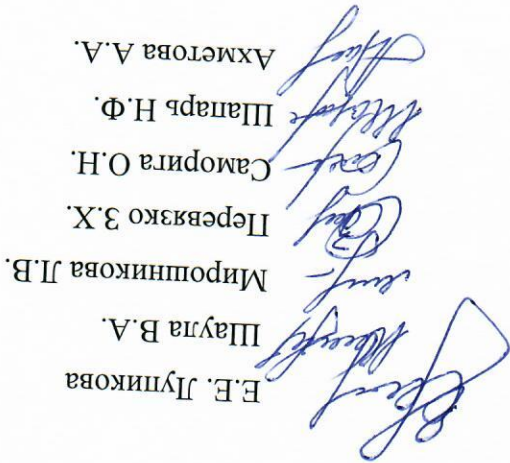 Е.Е. Лупикова
Шаула В.А.
Мирошникова Л.В.
Перевязко З.Х.
Саморига О.Н.
Шапарь Н.Ф.
Ахметова А.А.